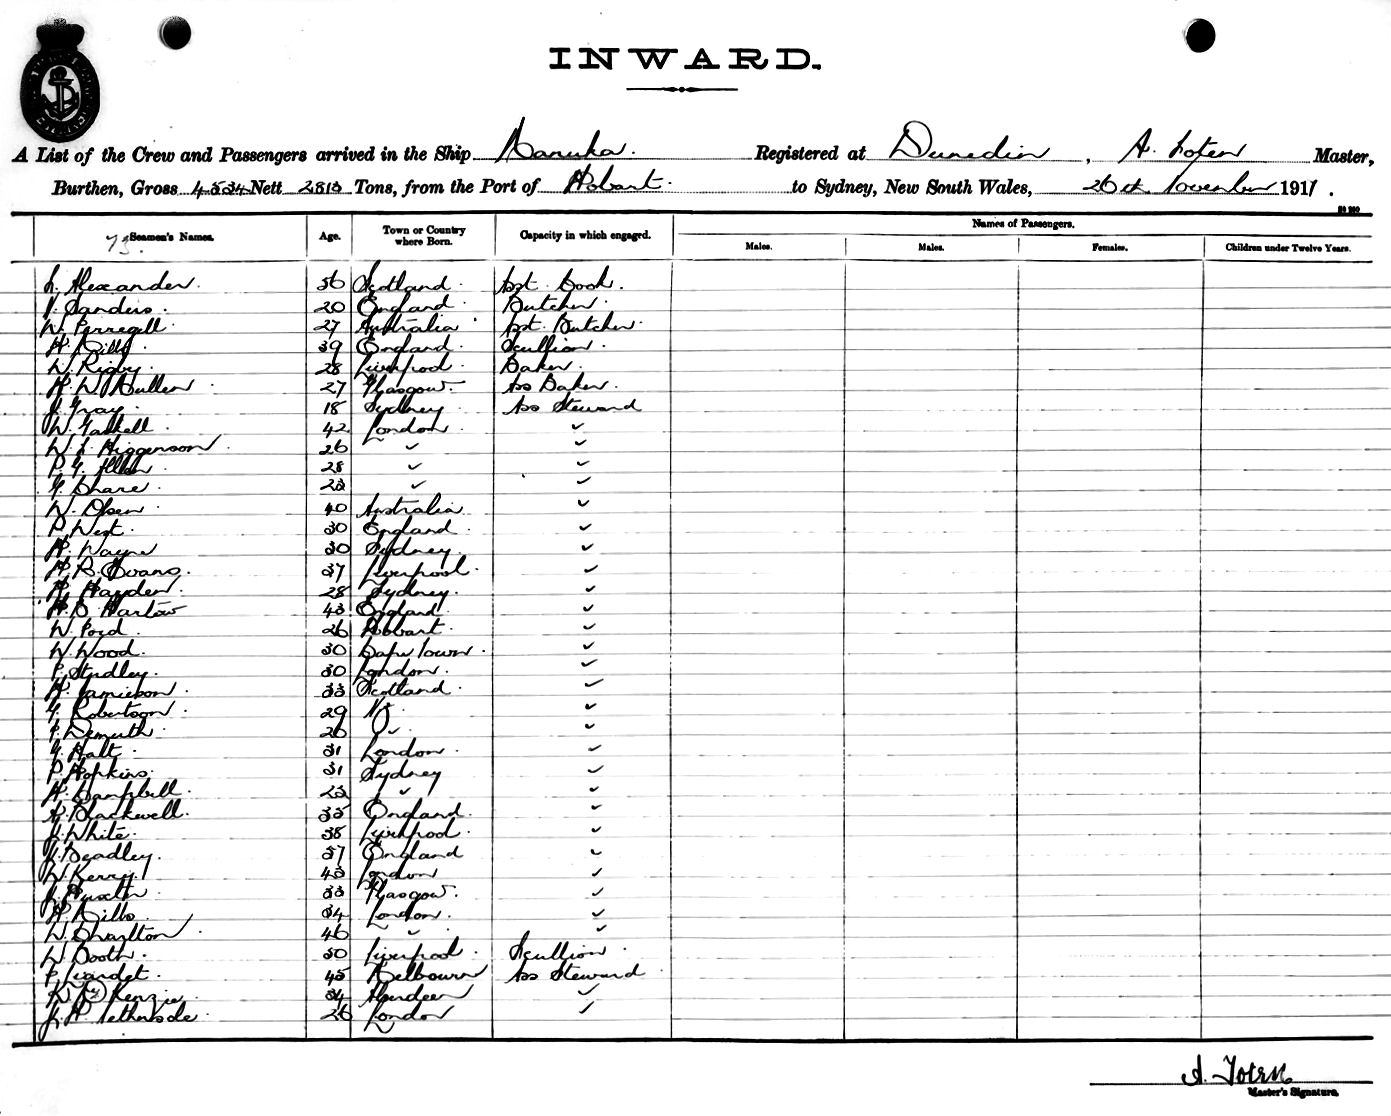 INWARD.
A List of the Crew and Passengers arrived in the Ship Manuka. Registered at Dunedin, A. Master,
Burthen, Gross 4534 Nett 2813 Tons, from the Port of Hobart. to Sydney, New South Wales, 26th November 1911.
73. Seamen's Names. Age. Town or Country where Born. Capacity in which engaged. Names of Passengers.
Males. Males. Females. Children under Twelve Years.
L. Alexander. 36 Scotland. Asst. Cook.
V. Sanders. 20 England. Butcher.
W. 27 Australia Asst. Butcher.
H. Mills. 39 England. Scullion.
W. Rigby. 28 Liverpool. Baker.
H. W. Mullen 27 Glasgow. Ass Baker.
J. Gray. 18 Sydney Ass Steward
W. Gaskell 42 London. ✓
W. J. Higgenson 26 ✓ ✓
P. G. Allen 28 ✓ ✓
G. Share. 23 ✓ ✓
W. Olsen 40 Australia ✓
P. West. 30 England. ✓
H. Wayne 30 Sydney. ✓
H. R. Evans. 37 Liverpool. ✓
H. Hayden. 28 Sydney. ✓
H. S. Harlow 43 England. ✓
W. Ford. 26 Hobart. ✓
W. Wood. 30 Cape Town. ✓
P. Studley. 30 London. ✓
H. Jamieson 33 Scotland. ✓
G. Robertson. 29 ✓
F. Demuth 26 ✓
G. Halt. 31 London. ✓
P. Hopkins. 31 Sydney ✓
H. Campbell. 23 ✓ ✓
A. Blackwell. 35 England. ✓
J. White. 38 Liverpool. ✓
J. Beadley. 37 England ✓
W. Kerry 43 London ✓
J. 33 Glasgow. ✓
H. Mills. 34 London. ✓
W. Charlton 46 ✓ ✓
W. Booth. 50 Liverpool. Scullion.
P. Liardet. 45 Melbourne Ass Steward
K. McKenzie 34 Aberdeen ✓
J. H. 26 London ✓
Master's Signature.